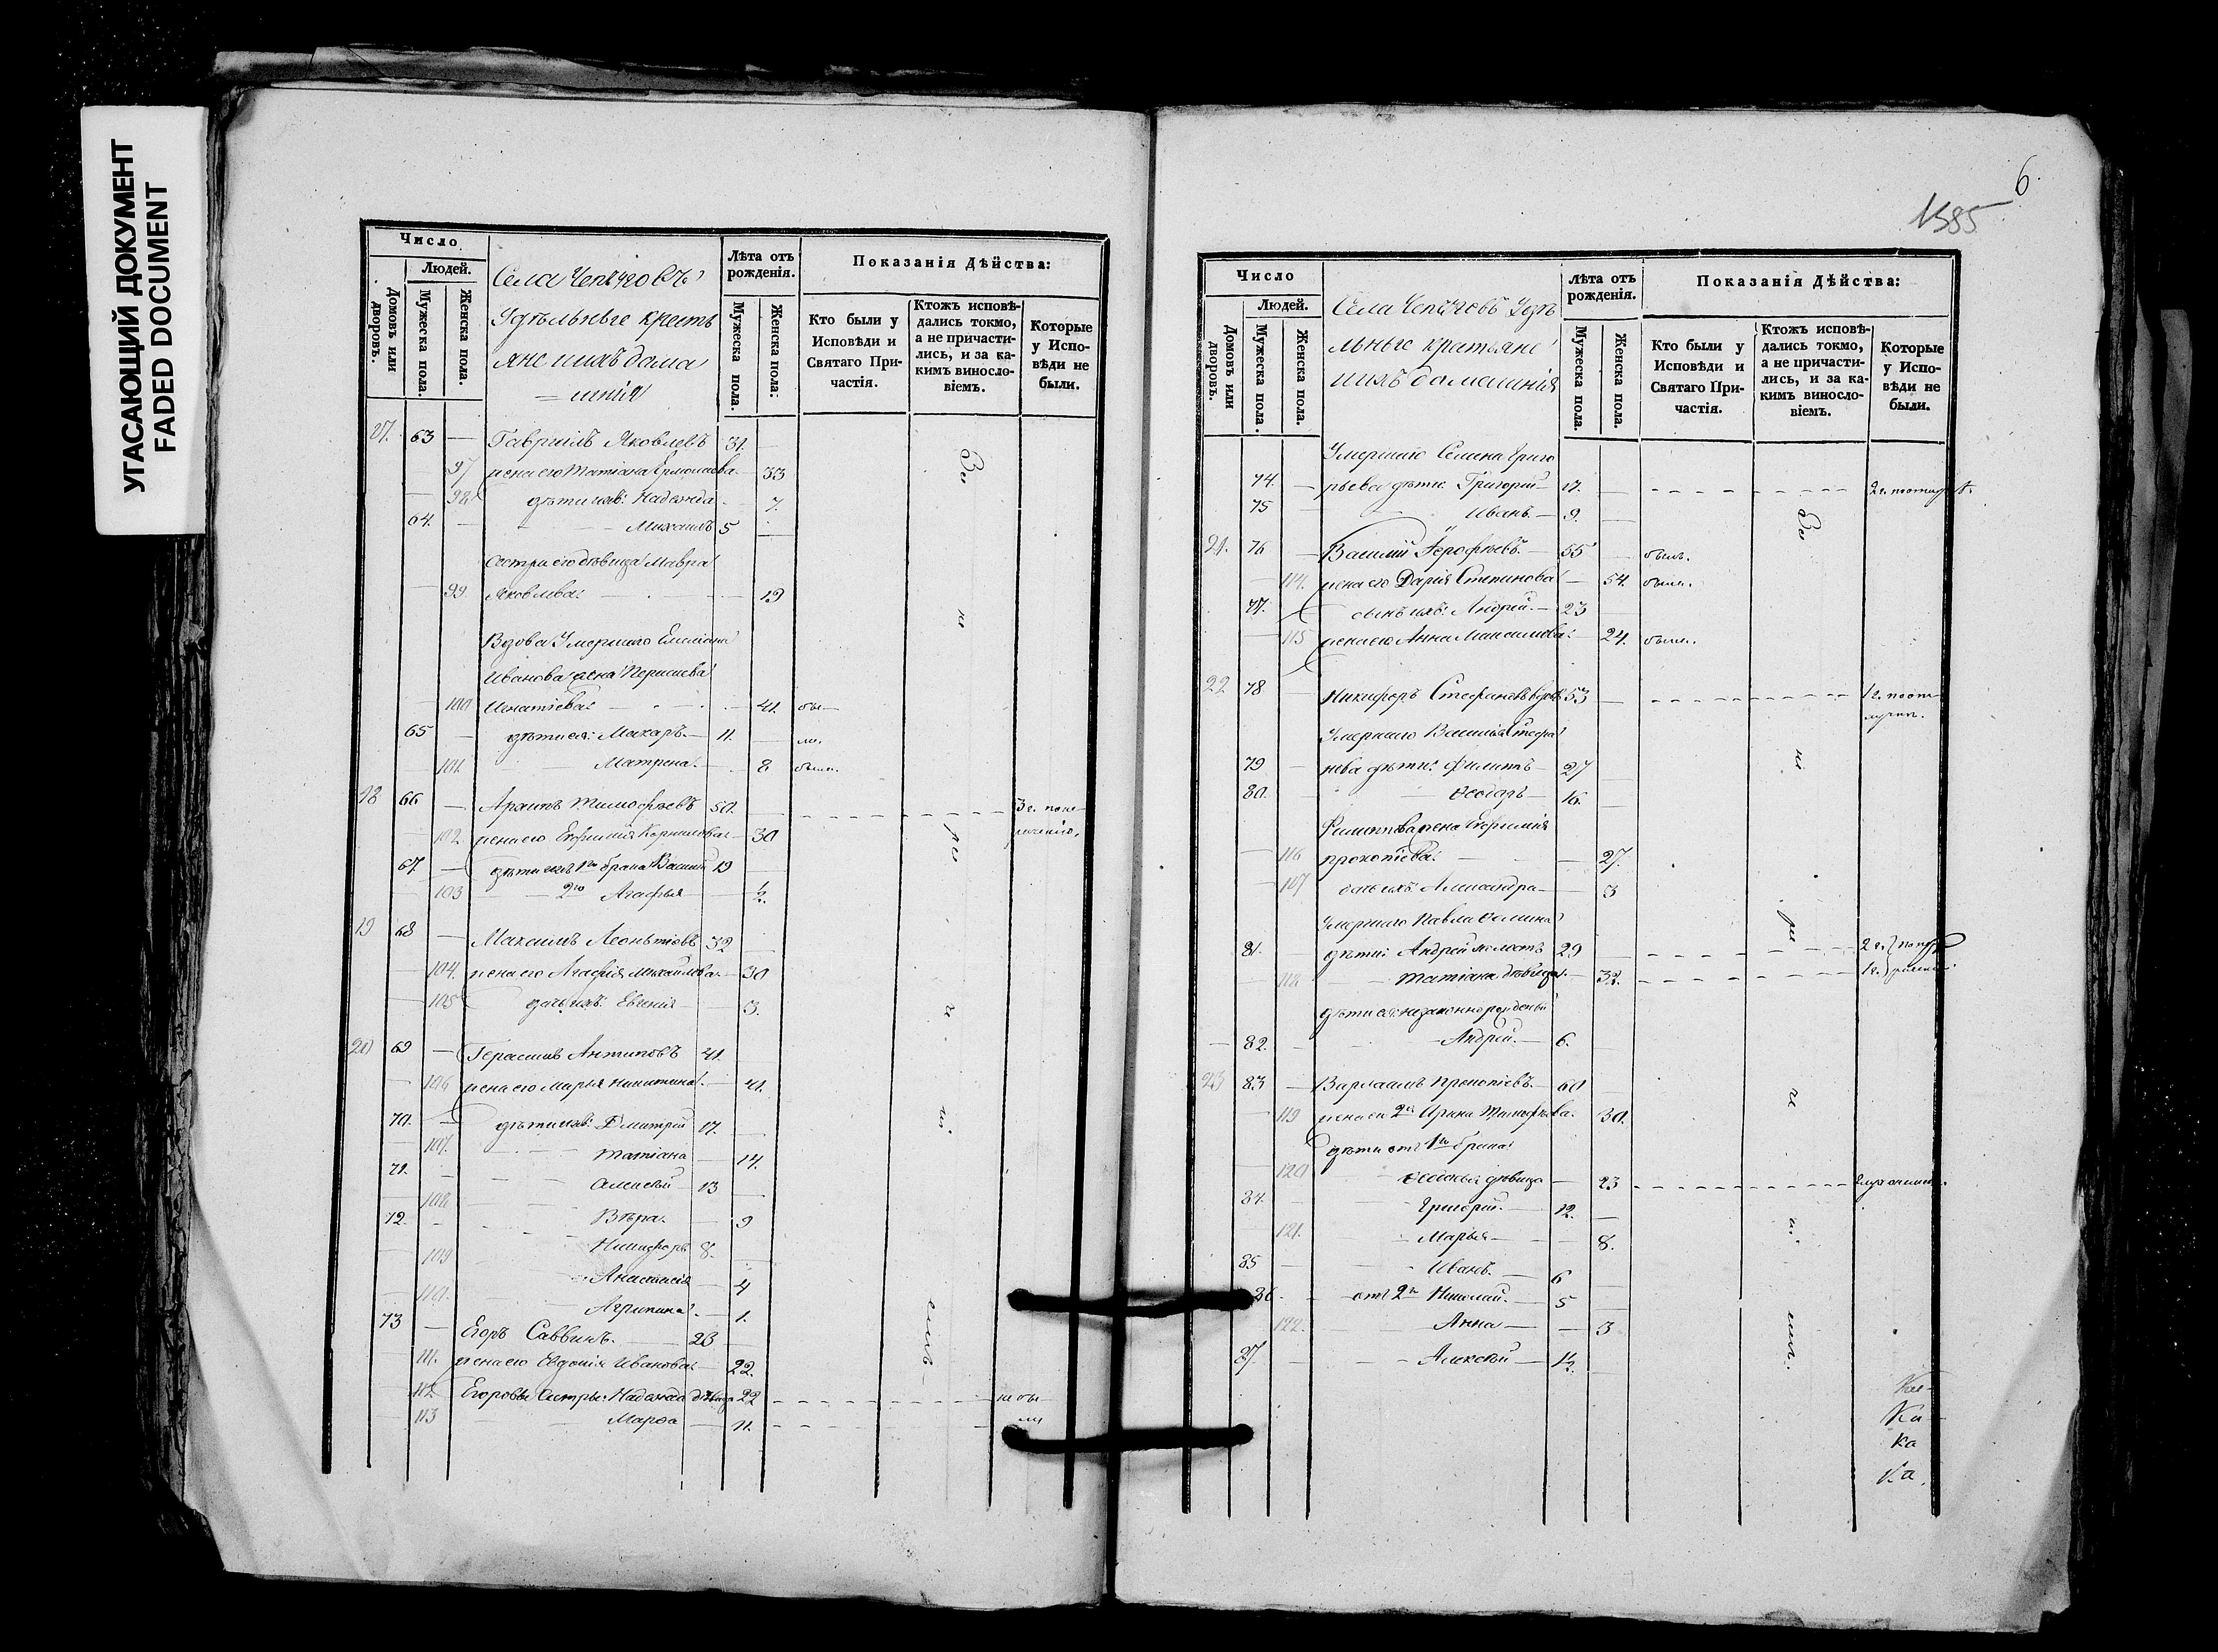 УГАСАЮЩИЙ ДОКУМЕНТ
FADED DOCUMENT
Число
Людей.
Домовъ или дворовъ.
Мужеска пола.
Женска пола.
Села
Удѣльные кресть
яне ихъ дома
= шнія
Лѣта отъ рожденія.
Мужеска пола.
Женска пола:
Показанія Дѣйства:
Кто были у Исповѣди и Святаго Причастія.
Ктожъ исповѣдались токмо, а не причастились, и за какимъ винословіемъ.
Которые у Исповѣди не были.
63 — Гавриилъ Яковлевъ 31.
97 жена его Татіана Ермолаева 33
98 дѣти ихъ: Надежда 7.
64. — Михаилъ 5
Сестра его дѣвица Мавра
99. Яковлева: 19
Вдова Умершаго Емеліана
Иванова жена
100 Игнатіева: 41. бы—
65 — дѣти ея: Макаръ 11. ли.
101. Матрена. 8 была.
18 66 — Архипъ Тимофѣевъ 50. 3 г. по
102. жена его Евфимія Корнилова 30
67. — дѣти ихъ 1го брака Василій 19
103 2го Агафья ½.
19 68 — Максимъ Леонтіевъ 32
104. жена его Агафія Михайлова 30
105 дочь ихъ: Евгенія 3.
20 69 — Герасимъ Антиповъ 41.
106 жена его Марья Никитина. 41.
70. — дѣти ихъ: Дмитрій 17.
107. Татіана 14.
71. Алексѣй 13
108 Вѣра. 9
72. Никифоръ 8.
109 Анастасія 4
110. Агрипина. 1.
73 — Егоръ Саввинъ. 23
111. жена его Евдокія Иванова 22.
112. Егоровы Сестры: Надежда дѣвица 22 не бы
113 Марѳа 11. ли
6.
1385
Число
Людей.
Домовъ или дворовъ.
Мужеска пола.
Женска пола.
Села Удѣ
льные крестьяне
ихъ домашнія
Лѣта отъ рожденія.
Мужеска пола.
Женска пола.
Показанія Дѣйства:
Кто были у Исповѣди и Святаго Причастія.
Ктожъ исповѣдались токмо, а не причастились, и за какимъ винословіемъ.
Которые у Исповѣди не были.
Умершаго Семена Григо
74. — рьева дѣти: Григорій 17. 2 г.
75 Иванъ. 9.
21. 76 — Василій Ѳерофѣевъ 55 былъ.
114. жена его Дарія Степанова 54. была.
77. сынъ ихъ: Андрей. 23
115 жена его Анна Максимова: 24. была.
22 78 — Никифоръ Стефановъ вдовъ 53 1 г.
Умершаго Василія Стефа
79 — нова дѣти: Филиппъ 27
80. Ѳеодоръ 16.
Филиппова жена Евфимія
116 прокопіева: 27.
107 дочь ихъ Александра 3
Умершаго Павла
81. дѣти: Андрей холостъ 29 2 г.
118 Татіана дѣвица 32. 1 г.
дѣти ея: незаконнорожденый
82. Андрей 6.
23 83 — Варлаамъ Прокопіевъ 60
119 жена его 2я Ирина Тимофѣева. 30.
дѣти отъ 1го брака:
120 дѣвица 23
84. Григорій. 12.
121. Марья 8.
85 Иванъ. 6
86. отъ 2го Николай. 5
122. Анна 3
87. Алексѣй ½.
Ка
Ка
Ка